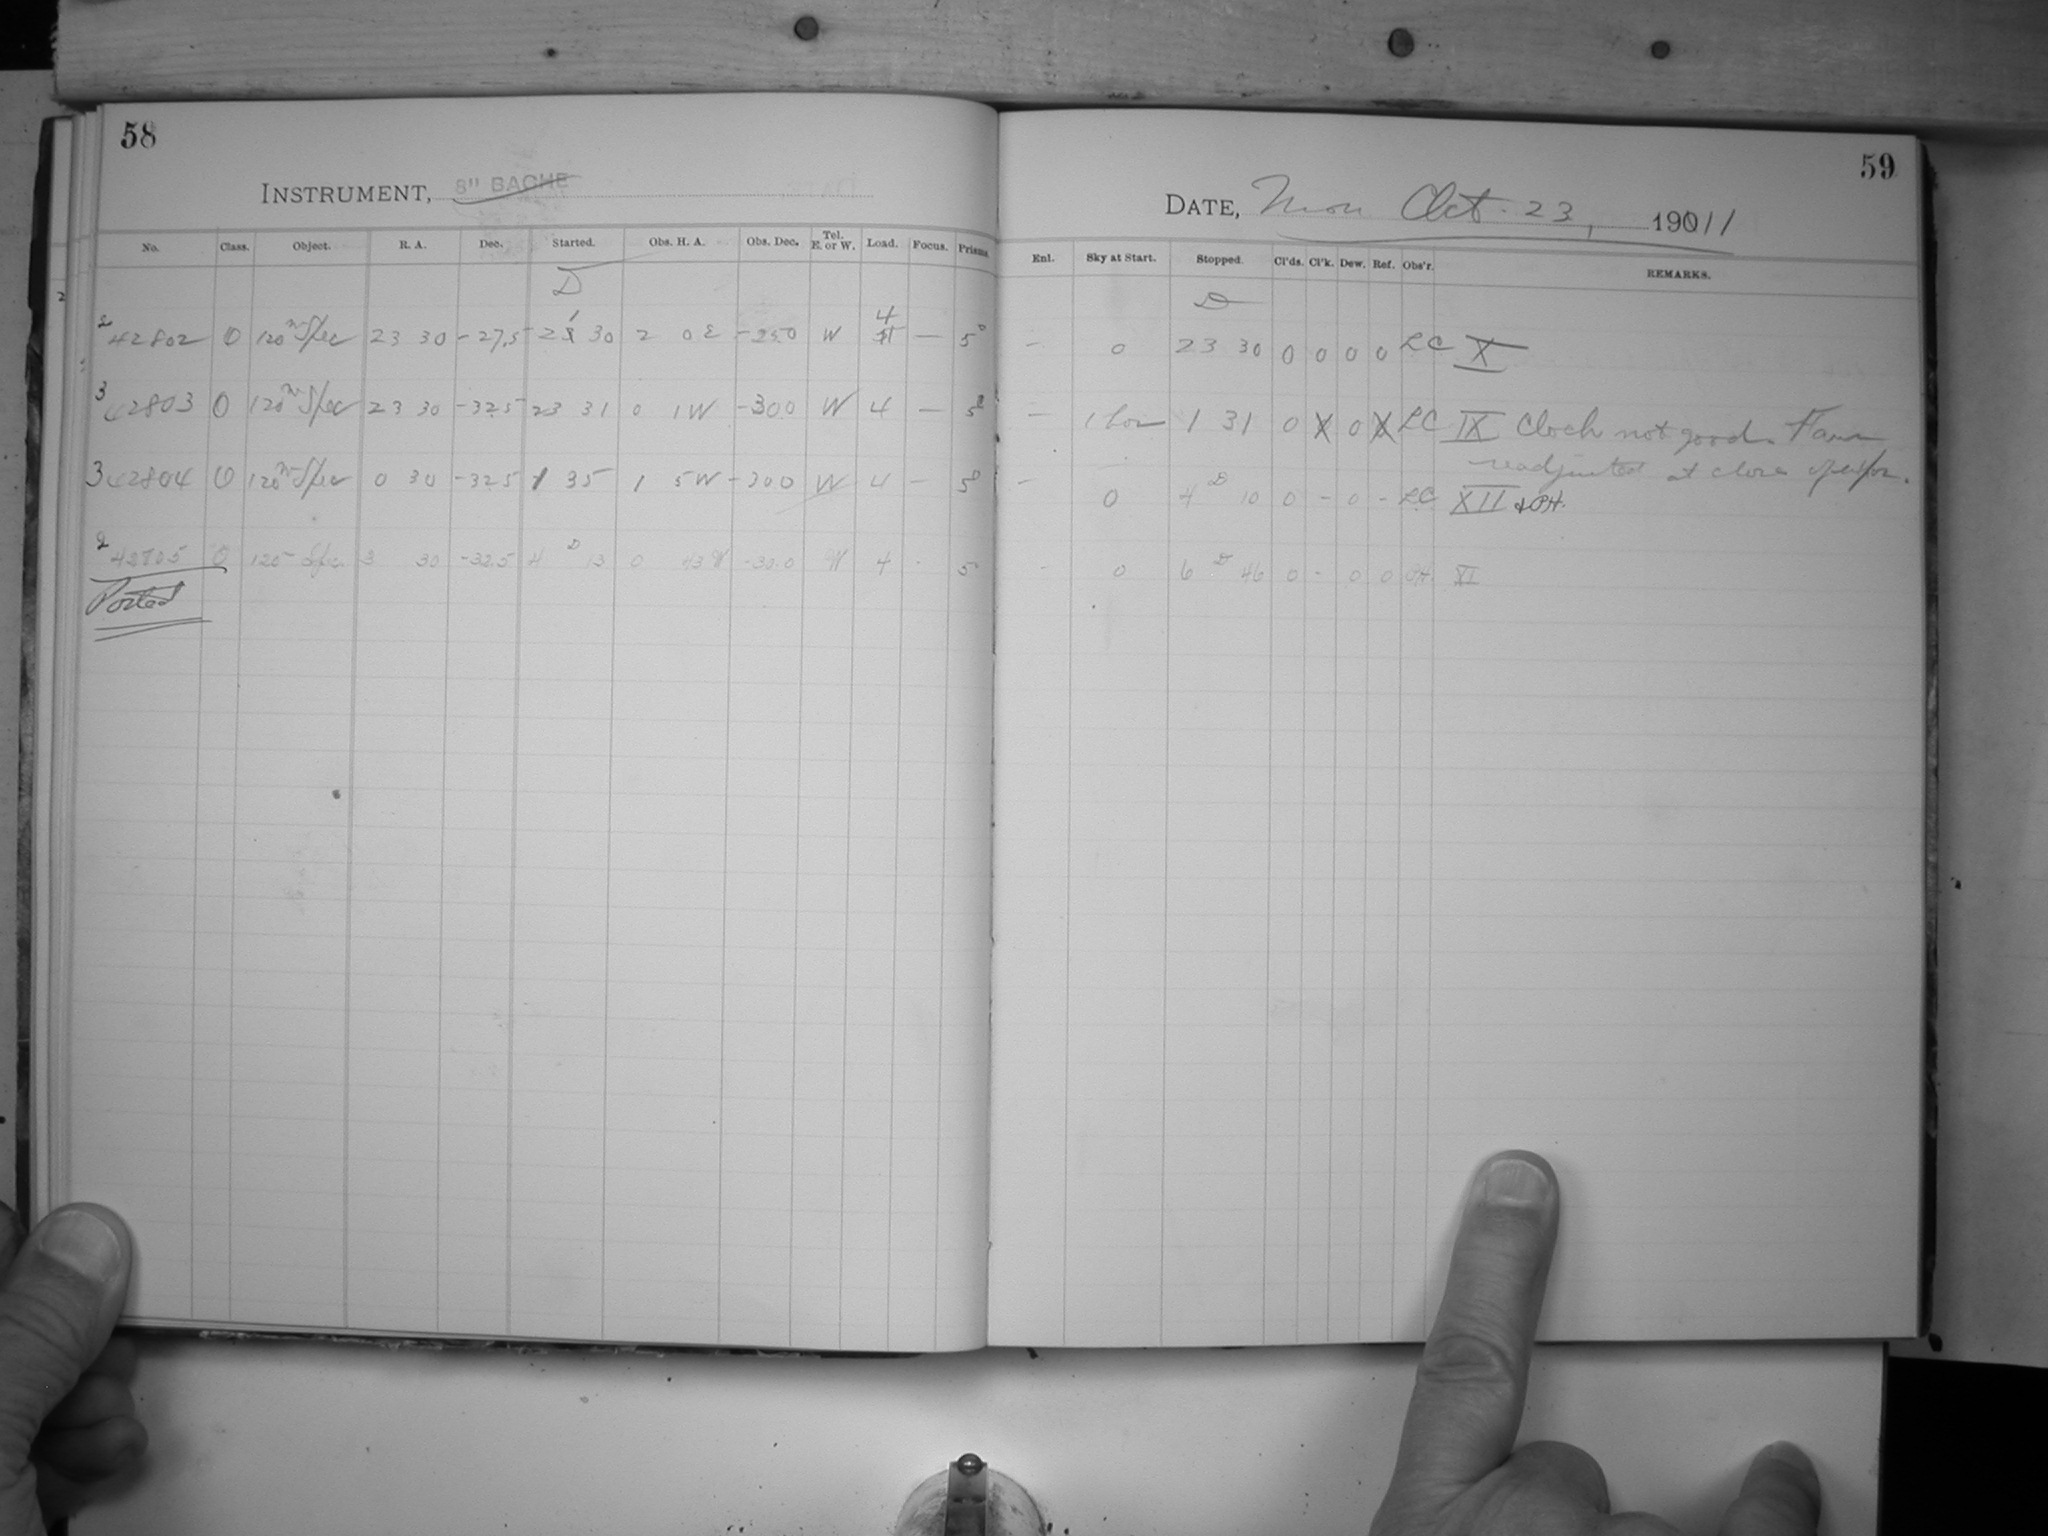 58
INSTRUMENT, 8" BACHE
No. Class. Object. R. A. Dec. Started. Obs. H. A. Obs. Dec. Tel. E. or W. Load. Focus. Prisms.
D
2 42802 O 120m Spec 23 30 -27.5 21 30 2 0 E -25.0 W 4 — 5°
3 42803 O 120m Spec 23 30 -32.5 23 31 0 1 W -30.0 W 4 — 5°
3 42804 O 120m Spec 0 30 -32.5 1 35 1 5 W -30.0 W 4 — 5°
2 42805 O 120 Spec 3 30 -32.5 4 D 13 0 43 W -30.0 W 4 - 5°
Posted
59
DATE, Mon Oct. 23, 1911
Enl. Sky at Start. Stopped. Cl'ds. Cl'k. Dew. Ref. Obs'r. REMARKS.
D
— 0 23 30 0 0 0 0 LC X
— 1 31 0 X 0 X LC IX Clock not good.
readjusted at close
— 0 4 D 10 0 - 0 - LC XII
- 0 6 D 46 0 - 0 0 XI